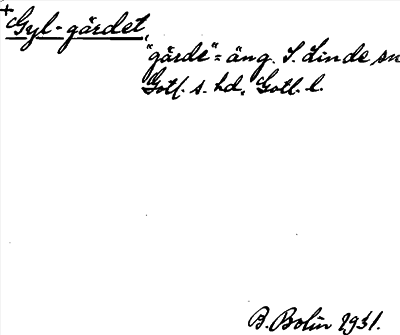 + Gyl-gärdet,
"gärde" = äng. S. Linde sn
Gotl. s. hd, Gotl. l.
B. Bolin 1931.